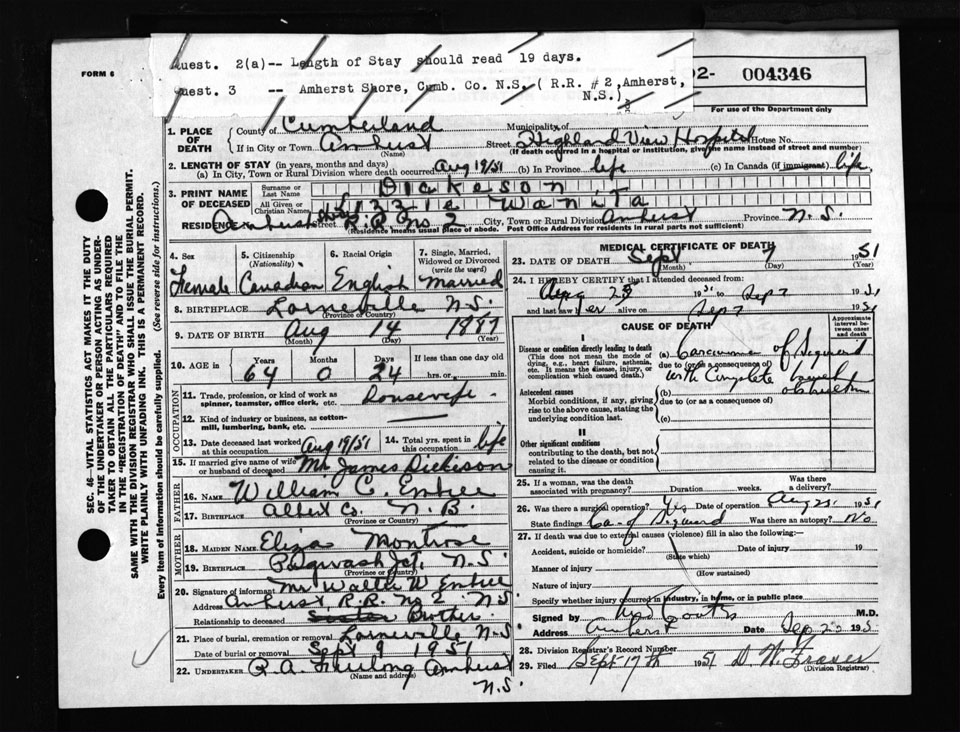 FORM 6
uest. 2(a)-- Length of Stay should read 19 days.
uest. 3 -- Amherst Shore, Cumb. Co. N.S. ( R.R. #2, Amherst,
N.S.)
02- 004346
For use of the Department only
1. PLACE OF DEATH
County of Cumberland Municipality of
If in City or Town Amherst (Name) Street Highland View Hospital House No.
(If death occurred in a hospital or institution, give the name instead of street and number)
2. LENGTH OF STAY (in years, months and days)
(a) In City, Town or Rural Division where death occurred Aug 19/51 (b) In Province life (c) In Canada (if immigrant) life
3. PRINT NAME OF DECEASED
Surname or Last Name Dickeson
All Given or Christian Names Lizzie Wanita
RESIDENCE Amherst Shore R.R. No 2 City, Town or Rural Division Amherst Province N.S.
(Residence means usual place of abode. Post Office Address for residents in rural parts not sufficient)
SEC. 46—VITAL STATISTICS ACT MAKES IT THE DUTY
OF THE UNDERTAKER OR PERSON ACTING AS UNDER-
TAKER TO OBTAIN ALL THE PARTICULARS REQUIRED
IN THE "REGISTRATION OF DEATH" AND TO FILE THE
SAME WITH THE DIVISION REGISTRAR WHO SHALL ISSUE THE BURIAL PERMIT.
WRITE PLAINLY WITH UNFADING INK. THIS IS A PERMANENT RECORD.
Every item of information should be carefully supplied. (See reverse side for instructions.)
4. Sex 5. Citizenship (Nationality) 6. Racial Origin 7. Single, Married, Widowed or Divorced (write the word)
Female Canadian English Married
8. BIRTHPLACE Lorneville N.S.
(Province or Country)
9. DATE OF BIRTH Aug 14 1887
(Month) (Day) (Year)
10. AGE in Years Months Days If less than one day old
64 0 24 hrs. or min.
OCCUPATION
11. Trade, profession, or kind of work as spinner, teamster, office clerk, etc. Housewife
12. Kind of industry or business, as cotton-mill, lumbering, bank, etc.
13. Date deceased last worked at this occupation Aug 19/51 14. Total yrs. spent in this occupation life
15. If married give name of wife or husband of deceased Mr James Dickeson
FATHER
16. NAME William C. Embree
17. BIRTHPLACE Albert Co. N.B.
(Province or Country)
MOTHER
18. MAIDEN NAME Eliza Montrose
19. BIRTHPLACE Pugwash Jct. N.S
(Province or Country)
20. Signature of informant Mr Walter W Embree
Address Amherst R.R. No 2 N.S
Relationship to deceased Sister Brother
21. Place of burial, cremation or removal Lorneville N.S
Date of burial or removal Sept 9 1951
22. UNDERTAKER R.A. Furlong Amherst
(Name and address)
N.S.
MEDICAL CERTIFICATE OF DEATH
23. DATE OF DEATH Sept 7 1951
(Month) (Year)
24. I HEREBY CERTIFY that I attended deceased from:
Aug 23 1951 to Sep 7 1951
and last saw her alive on Sep 7 1951
CAUSE OF DEATH
Approximate interval between onset and death
I
Disease or condition directly leading to death
(This does not mean the mode of dying, e.g., heart failure, asthenia, etc. It means the disease, injury, or complication which caused death.)
(a) Carcinoma of Sigmoid
due to (or as a consequence of)
with Complete bowel
obstruction
Antecedent causes
Morbid conditions, if any, giving rise to the above cause, stating the underlying condition last.
(b)
due to (or as a consequence of)
(c)
II
Other significant conditions
contributing to the death, but not related to the disease or condition causing it.
25. If a woman, was the death associated with pregnancy? Duration weeks. Was there a delivery?
26. Was there a surgical operation? Yes Date of operation Aug 25 1951
State findings Ca of Sigmoid Was there an autopsy? No
27. If death was due to external causes (violence) fill in also the following:—
Accident, suicide or homicide? (State which) Date of injury 19
Manner of injury (How sustained)
Nature of injury
Specify whether injury occurred in industry, in home, or in public place
Signed by Coates M.D.
Address Amherst Date Sep 20 195
28. Division Registrar's Record Number
29. Filed Sept 17th 1951 D. W. Fraser
(Division Registrar)